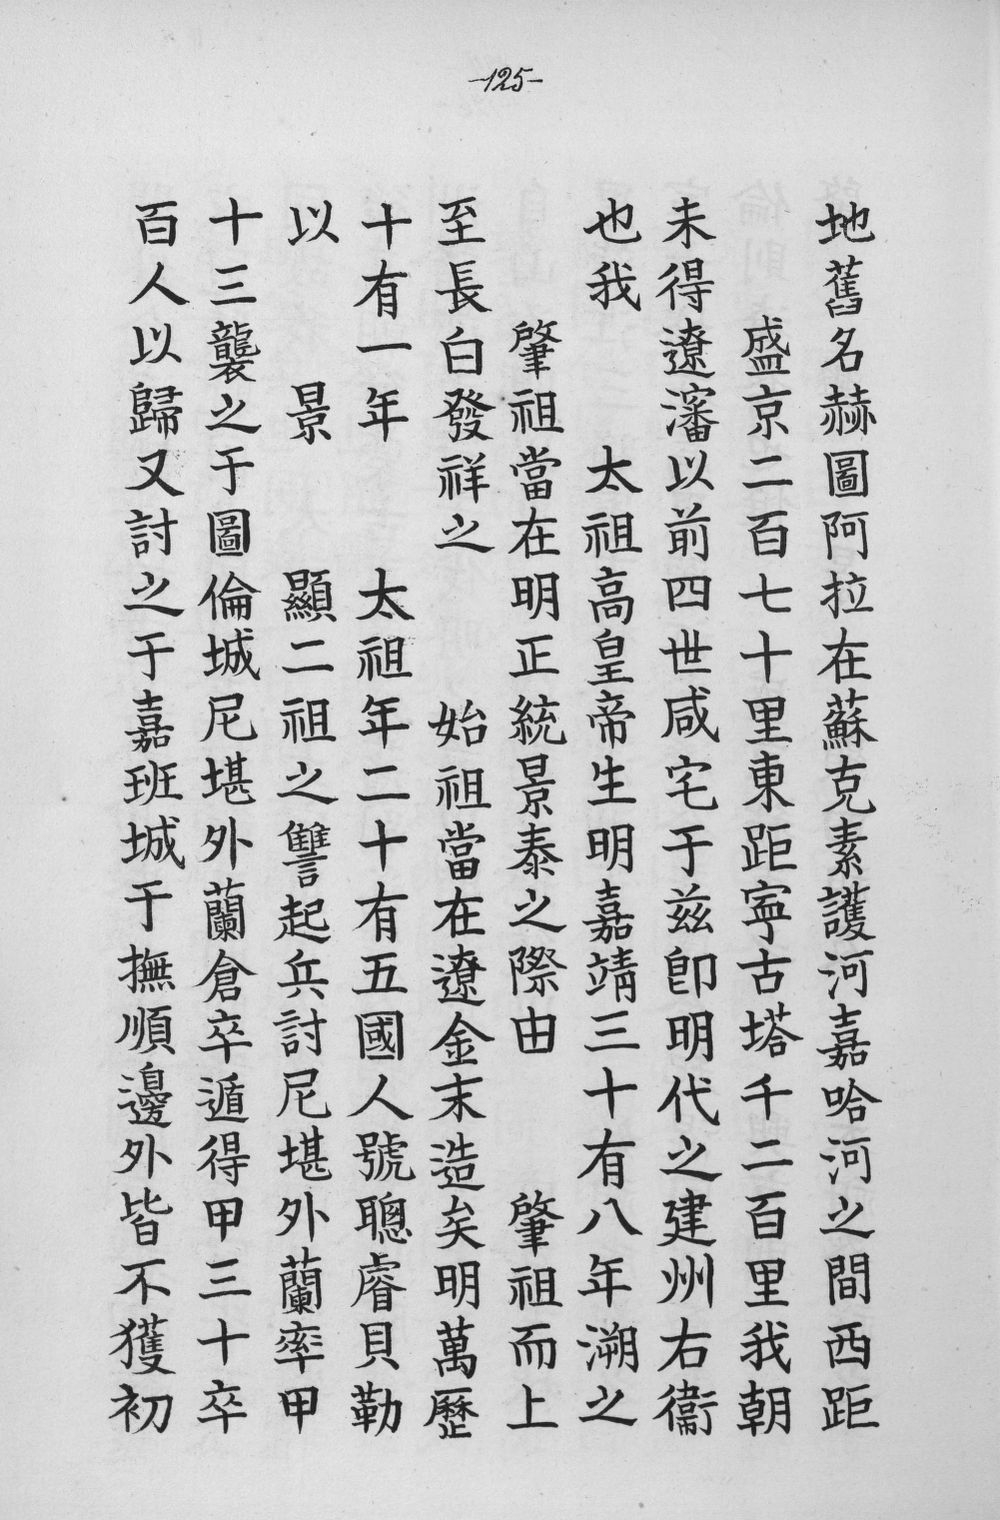 -125-
地舊名赫圖阿拉在蘇克素護河嘉哈河之間西距
盛京二百七十里東距寧古塔千二百里我朝
未得遼瀋以前四世咸宅于茲卽明代之建州右衞
也我 太祖高皇帝生明嘉靖三十有八年溯之
肇祖當在明正統景泰之際由 肇祖而上
至長白發祥之 始祖當在遼金末造矣明萬歷
十有一年 太祖年二十有五國人號聰睿貝勒
以 景 顯二祖之讐起兵討尼堪外蘭率甲
十三襲之于圖倫城尼堪外蘭倉卒遁得甲三十卒
百人以歸又討之于嘉班城于撫順邊外皆不獲初